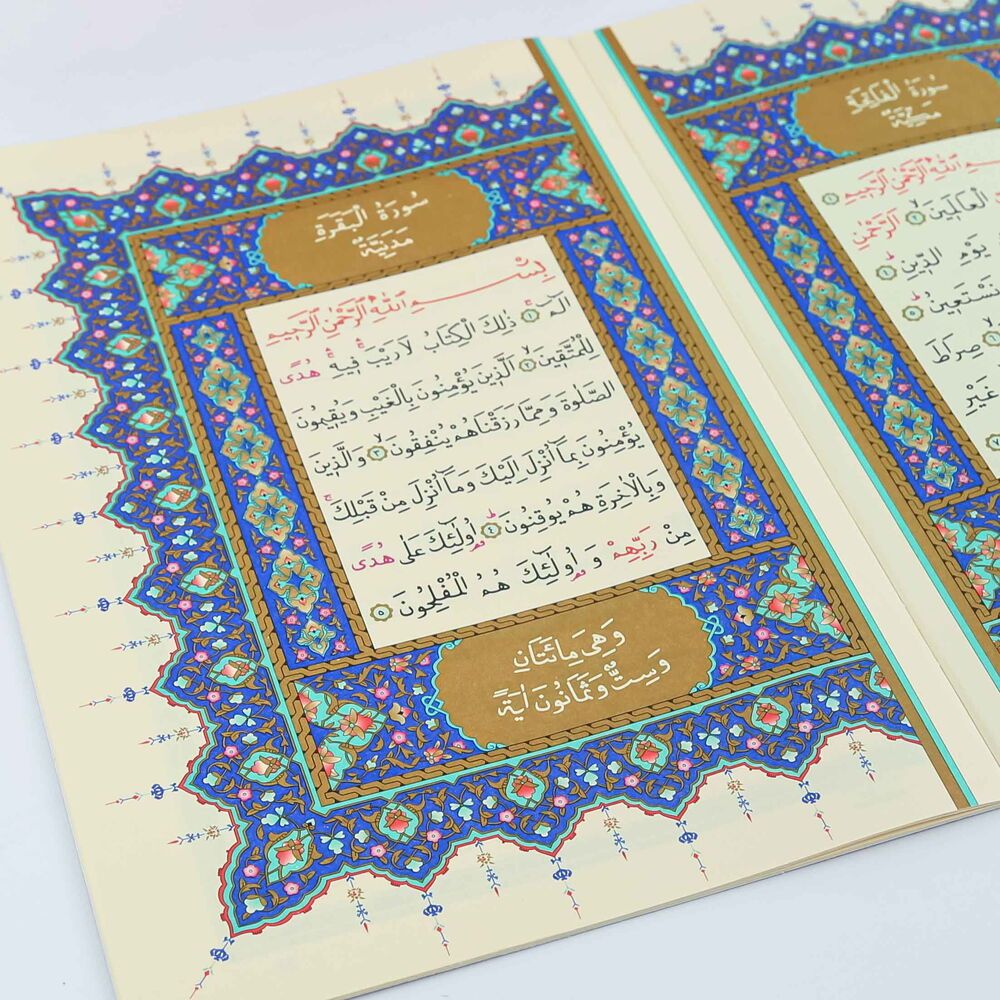 سُورَةُ الْفَاتِحَةِ
مَكِّيَّةٌ
اللّٰهِ الرَّحْمٰنِ الرَّحِيمِ ١
الْعَالَمِينَ ٢ اَلرَّحْمٰنِ
يَوْمِ الدِّينِ ٤
نَسْتَعِينُ ٥
٦ صِرَاطَ
غَيْرِ
٧
سُورَةُ الْبَقَرَةِ
مَدَنِيَّةٌ
بِسْمِ اللّٰهِ الرَّحْمٰنِ الرَّحِيمِ
الٓمٓ ١ ذٰلِكَ الْكِتَابُ لَا رَيْبَ فِيهِ هُدًى
لِلْمُتَّقِينَ ٢ اَلَّذِينَ يُؤْمِنُونَ بِالْغَيْبِ وَيُقِيمُونَ
الصَّلٰوةَ وَمِمَّا رَزَقْنَاهُمْ يُنْفِقُونَ ٣ وَالَّذِينَ
يُؤْمِنُونَ بِمَٓا اُنْزِلَ اِلَيْكَ وَمَٓا اُنْزِلَ مِنْ قَبْلِكَ
وَبِالْاٰخِرَةِ هُمْ يُوقِنُونَ ٤ اُو۬لٰٓئِكَ عَلٰى هُدًى
مِنْ رَبِّهِمْ وَ اُو۬لٰٓئِكَ هُمُ الْمُفْلِحُونَ ٥
وَهِيَ مِائَتَانِ
وَسِتٌّ وَثَمَانُونَ اٰيَةً